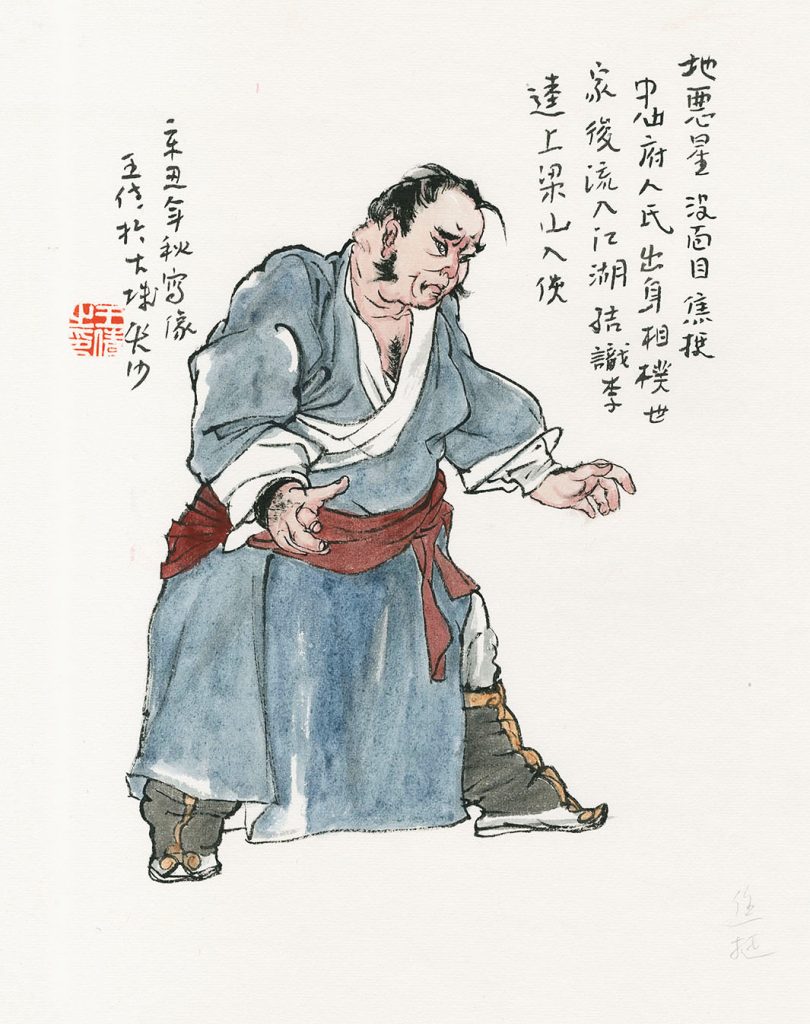 地惡星 没面目 焦挺
中山府人氏出身相樸世
家後流入江湖結識李
逵上梁山入伙
辛丑年秋寫像
王倩於大
王倩之印
焦
挺